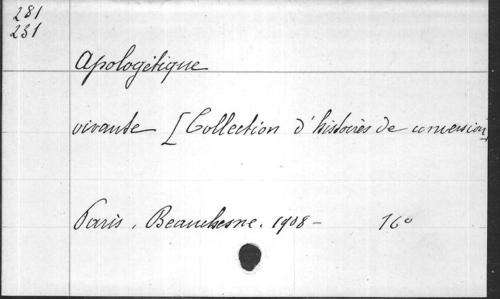 281
231
Apologétique
vivante [Collection d'histoires de conversion]
Paris, Beauchesne. 1908 – 16°